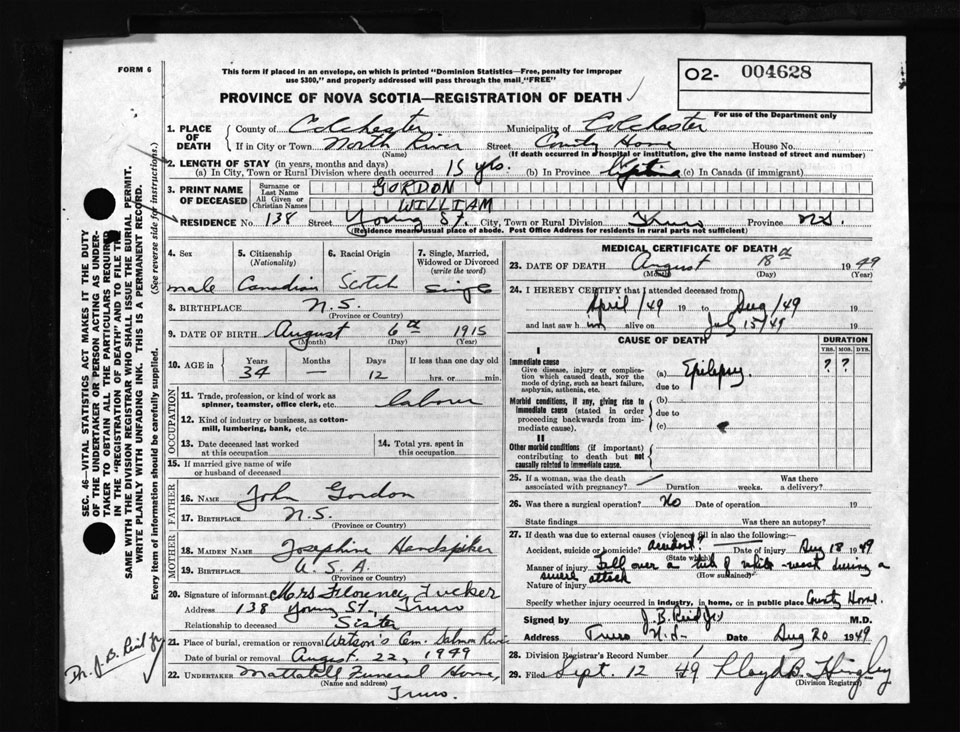 FORM 6
This form if placed in an envelope, on which is printed "Dominion Statistics—Free, penalty for improper
use $300," and properly addressed will pass through the mail "FREE"
O2- 004628
For use of the Department only
PROVINCE OF NOVA SCOTIA—REGISTRATION OF DEATH
1. PLACE OF DEATH
County of Colchester Municipality of Colchester
If in City or Town North River Street County Home House No.
(Name) (If death occurred in a hospital or institution, give the name instead of street and number)
2. LENGTH OF STAY (in years, months and days)
(a) In City, Town or Rural Division where death occurred 15 yrs. (b) In Province Lifetime (c) In Canada (if immigrant)
3. PRINT NAME OF DECEASED
Surname or Last Name GORDON
All Given or Christian Names WILLIAM
RESIDENCE No 138 Street Young St. City, Town or Rural Division Truro Province N.S.
(Residence means usual place of abode. Post Office Address for residents in rural parts not sufficient)
4. Sex male
5. Citizenship (Nationality) Canadian
6. Racial Origin Scotch
7. Single, Married, Widowed or Divorced (write the word) Single
8. BIRTHPLACE N.S.
(Province or Country)
9. DATE OF BIRTH August 6th 1915
(Month) (Day) (Year)
10. AGE in Years 34 Months — Days 12 If less than one day old
hrs. or min.
OCCUPATION
11. Trade, profession, or kind of work as
spinner, teamster, office clerk, etc. labour
12. Kind of industry or business, as cotton-
mill, lumbering, bank, etc.
13. Date deceased last worked
at this occupation
14. Total yrs. spent in
this occupation
15. If married give name of wife
or husband of deceased
FATHER
16. NAME John Gordon
17. BIRTHPLACE N.S.
(Province or Country)
MOTHER
18. MAIDEN NAME Josephine Handspiker
19. BIRTHPLACE U.S.A.
(Province or Country)
20. Signature of informant Mrs Florence Tucker
Address 138 Young St., Truro
Relationship to deceased Sister
21. Place of burial, cremation or removal Watson's Cem. Salmon River
Date of burial or removal August 22, 1949
22. UNDERTAKER Mattatall Funeral Home,
(Name and address)
Truro.
MEDICAL CERTIFICATE OF DEATH
23. DATE OF DEATH August 18th 1949
(Month) (Day) (Year)
24. I HEREBY CERTIFY that I attended deceased from
April /49 19 to Aug /49 19
and last saw him alive on July 15/49 19
CAUSE OF DEATH
DURATION
YRS. MOS. DYS.
I
Immediate cause
Give disease, injury or complica-
tion which caused death, NOT the
mode of dying, such as heart failure,
asphyxia, asthenia, etc.
(a) Epilepsy. ? ?
due to
Morbid conditions, if any, giving rise to
immediate cause (stated in order
proceeding backwards from im-
mediate cause).
(b)
due to
(c)
II
Other morbid conditions (if important)
contributing to death but not
causally related to immediate cause.
25. If a woman, was the death
associated with pregnancy? Duration weeks. Was there
a delivery?
26. Was there a surgical operation? No Date of operation 19
State findings Was there an autopsy?
27. If death was due to external causes (violence) fill in also the following:
Accident, suicide or homicide? accident? Date of injury Aug 18 1949
(State which)
Manner of injury Fell over a tub of white-wash during a
(How sustained)
Nature of injury severe attack
Specify whether injury occurred in industry, in home, or in public place County Home.
Signed by J.B. Reid Jr. M.D.
Address Truro N.S. Date Aug 20 1949
28. Division Registrar's Record Number 1
29. Filed Sept. 12 49 Lloyd B. Hingley
(Division Registrar)
SEC. 46—VITAL STATISTICS ACT MAKES IT THE DUTY
OF THE UNDERTAKER OR PERSON ACTING AS UNDER-
TAKER TO OBTAIN ALL THE PARTICULARS REQUIRED
IN THE "REGISTRATION OF DEATH" AND TO FILE THE
SAME WITH THE DIVISION REGISTRAR WHO SHALL ISSUE THE BURIAL PERMIT.
WRITE PLAINLY WITH UNFADING INK. THIS IS A PERMANENT RECORD.
Every item of information should be carefully supplied. (See reverse side for instructions.)
Dr. J. B. Reid Jr